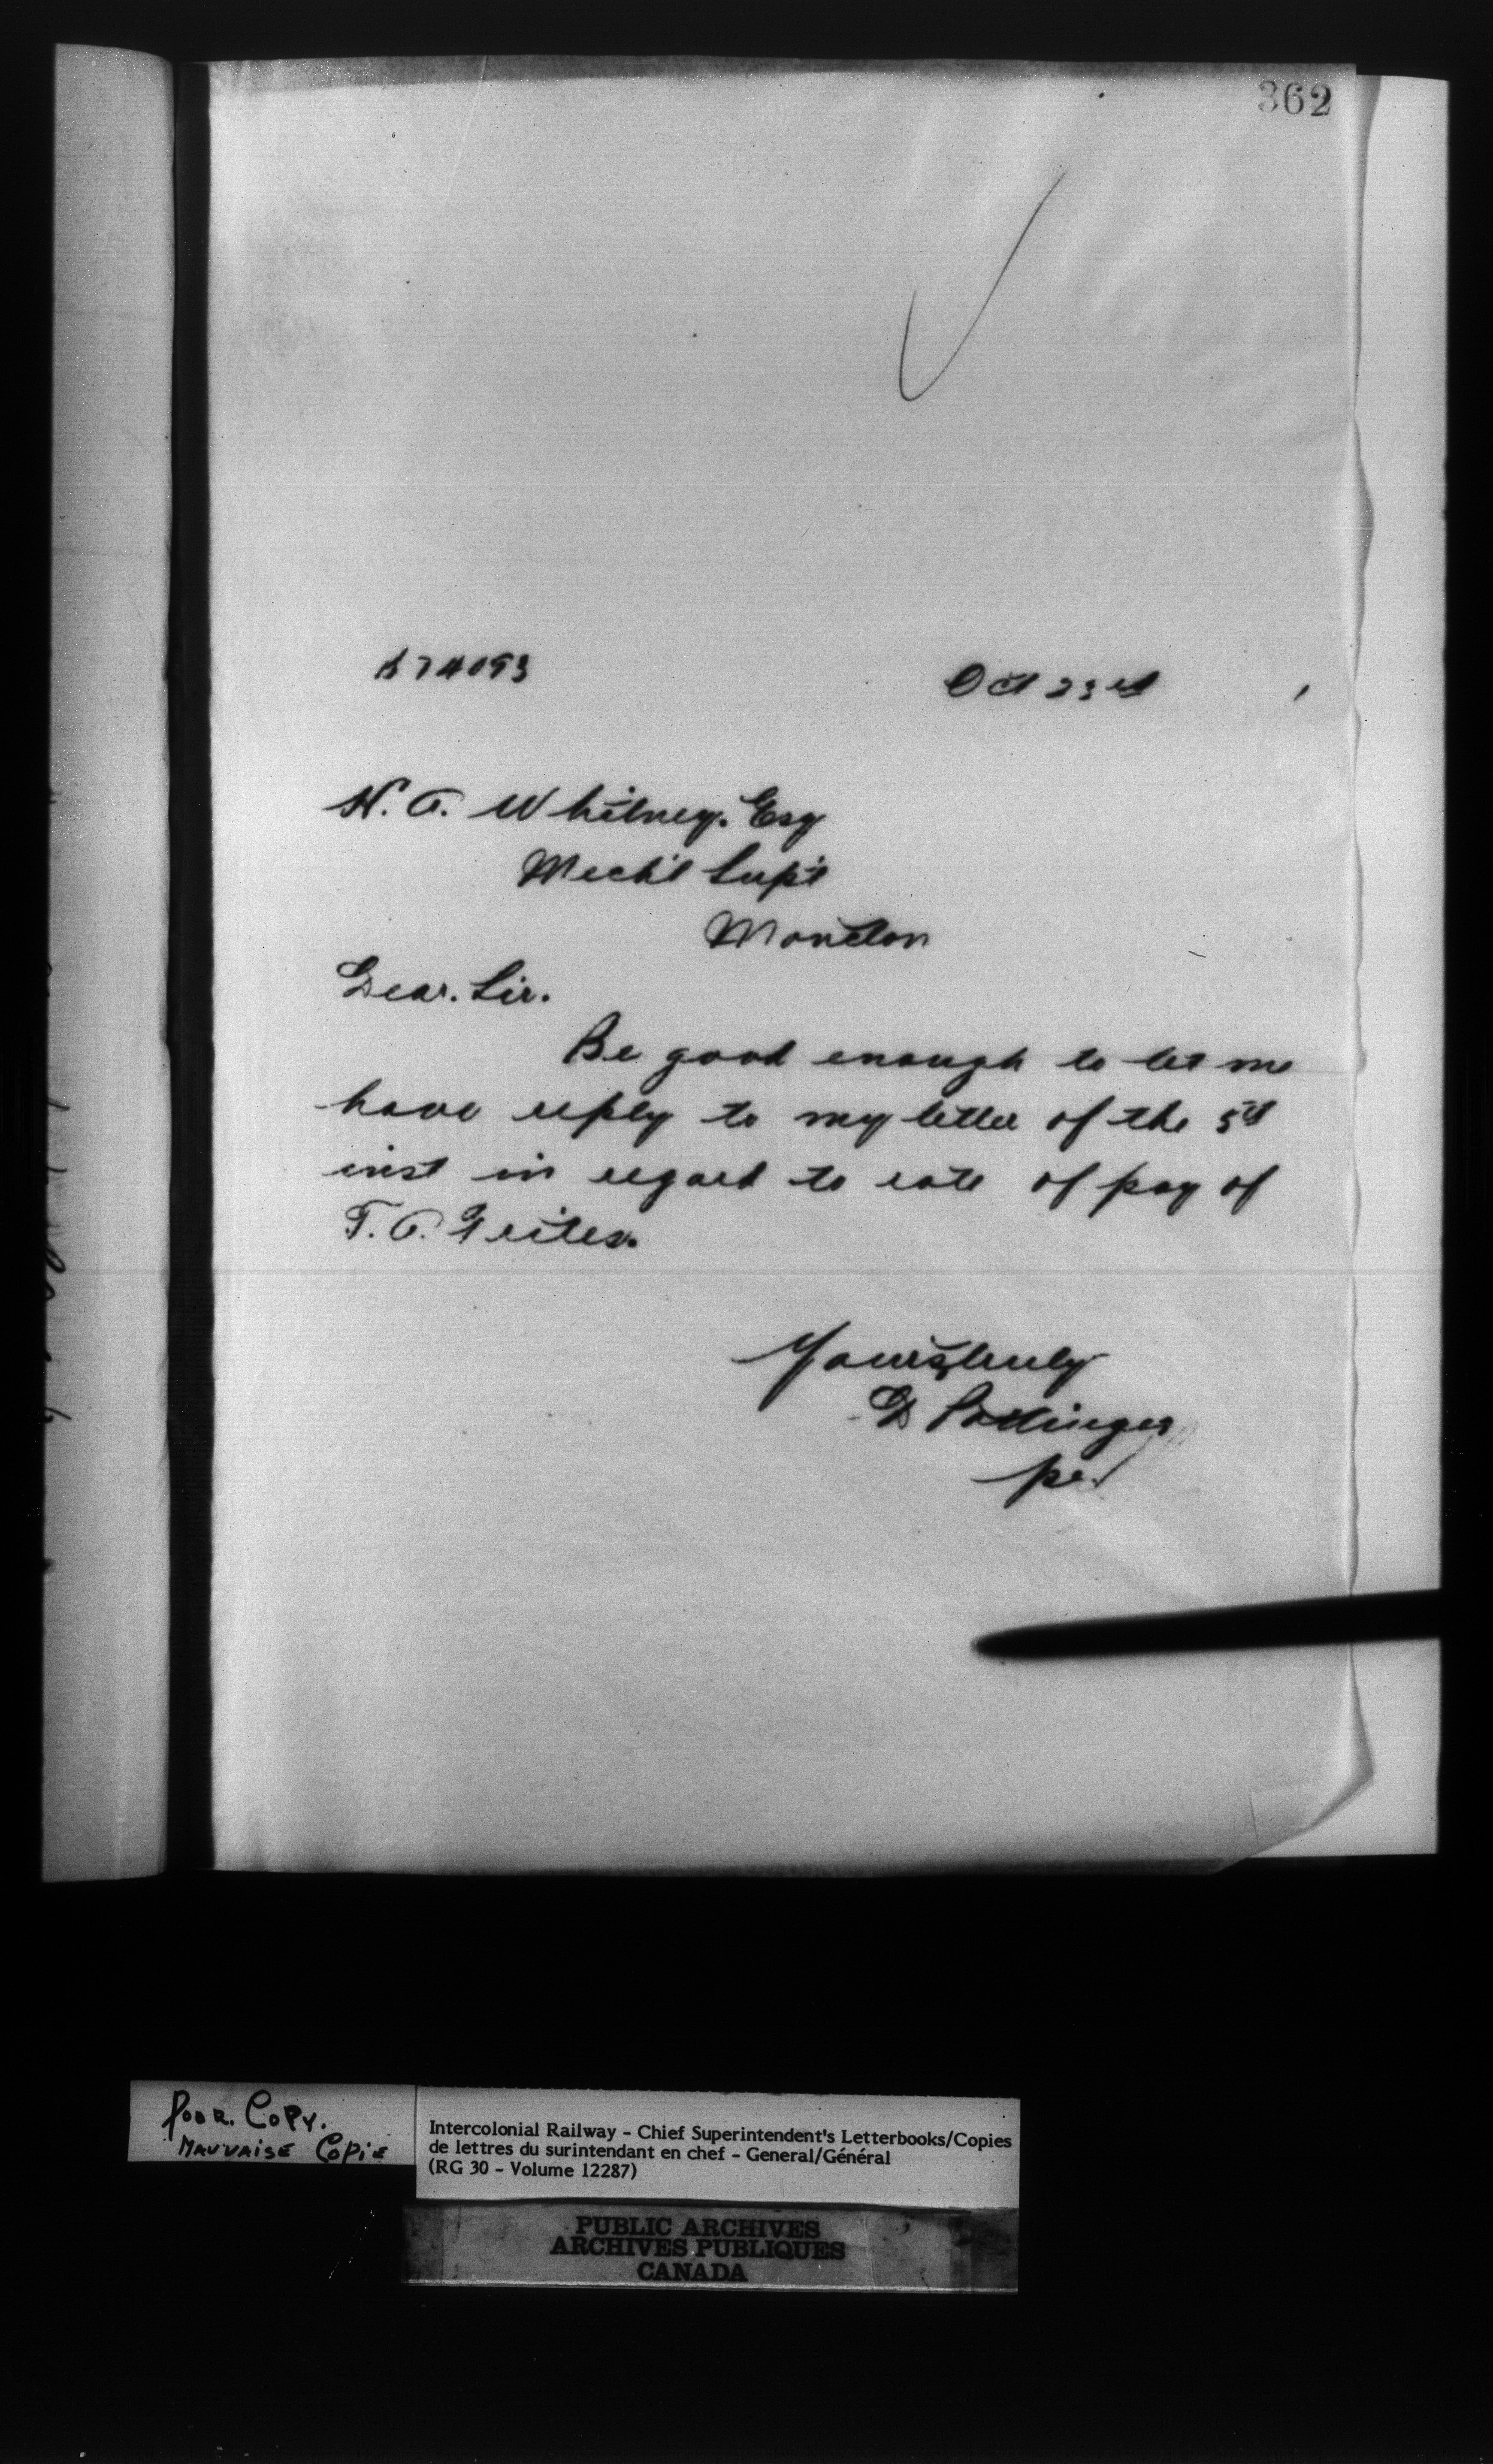 362
Oct 23rd
H. A. Whitney. Esq
Mech'l Sup't
Moncton
Dear. Sir.
Be good enough to let me
have reply to my letter of the 5th
inst in regard to rate of pay of
T. A.
Yours truly
D Pottinger
per
Poor. Copy.
Mauvaise Copie
Intercolonial Railway - Chief Superintendent's Letterbooks/Copies
de lettres du surintendant en chef - General/Général
(RG 30 - Volume 12287)
PUBLIC ARCHIVES
ARCHIVES PUBLIQUES
CANADA